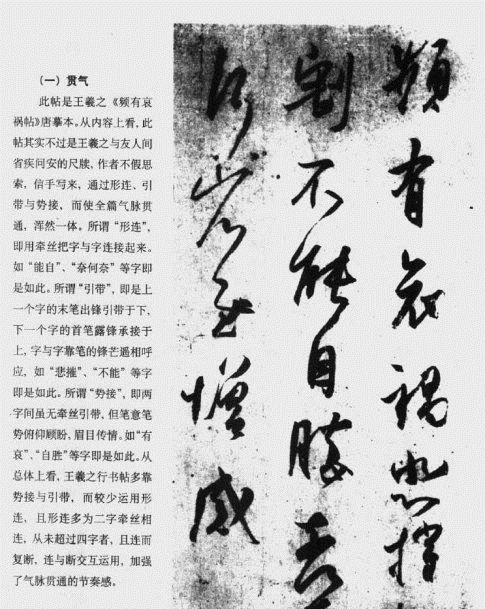 （一）贯气
此帖是王羲之《频有哀
祸帖》唐摹本。从内容上看,此
帖其实不过是王羲之与友人间
省疾问安的尺牍,作者不假思
索,信手写来,通过形连、引
带与势接,而使全篇气脉贯
通,浑然一体。所谓“形连”,
即用牵丝把字与字连接起来。
如“能自”、“奈何奈”等字即
是如此。所谓“引带”,即是上
一个字的末笔出锋引带于下,
下一个字的首笔露锋承接于
上,字与字靠笔的锋芒遥相呼
应,如“悲摧”、“不能”等字
即是如此。所谓“势接”,即两
字间虽无牵丝引带,但笔意笔
势俯仰顾盼,眉目传情。如“有
哀”、“自胜”等字即是如此。从
总体上看,王羲之行书帖多靠
势接与引带,而较少运用形
连,且形连多为二字牵丝相
连,从未超过四字者,且连而
复断,连与断交互运用,加强
了气脉贯通的节奏感。
頻有哀禍悲摧
割不能自勝奈
何增感